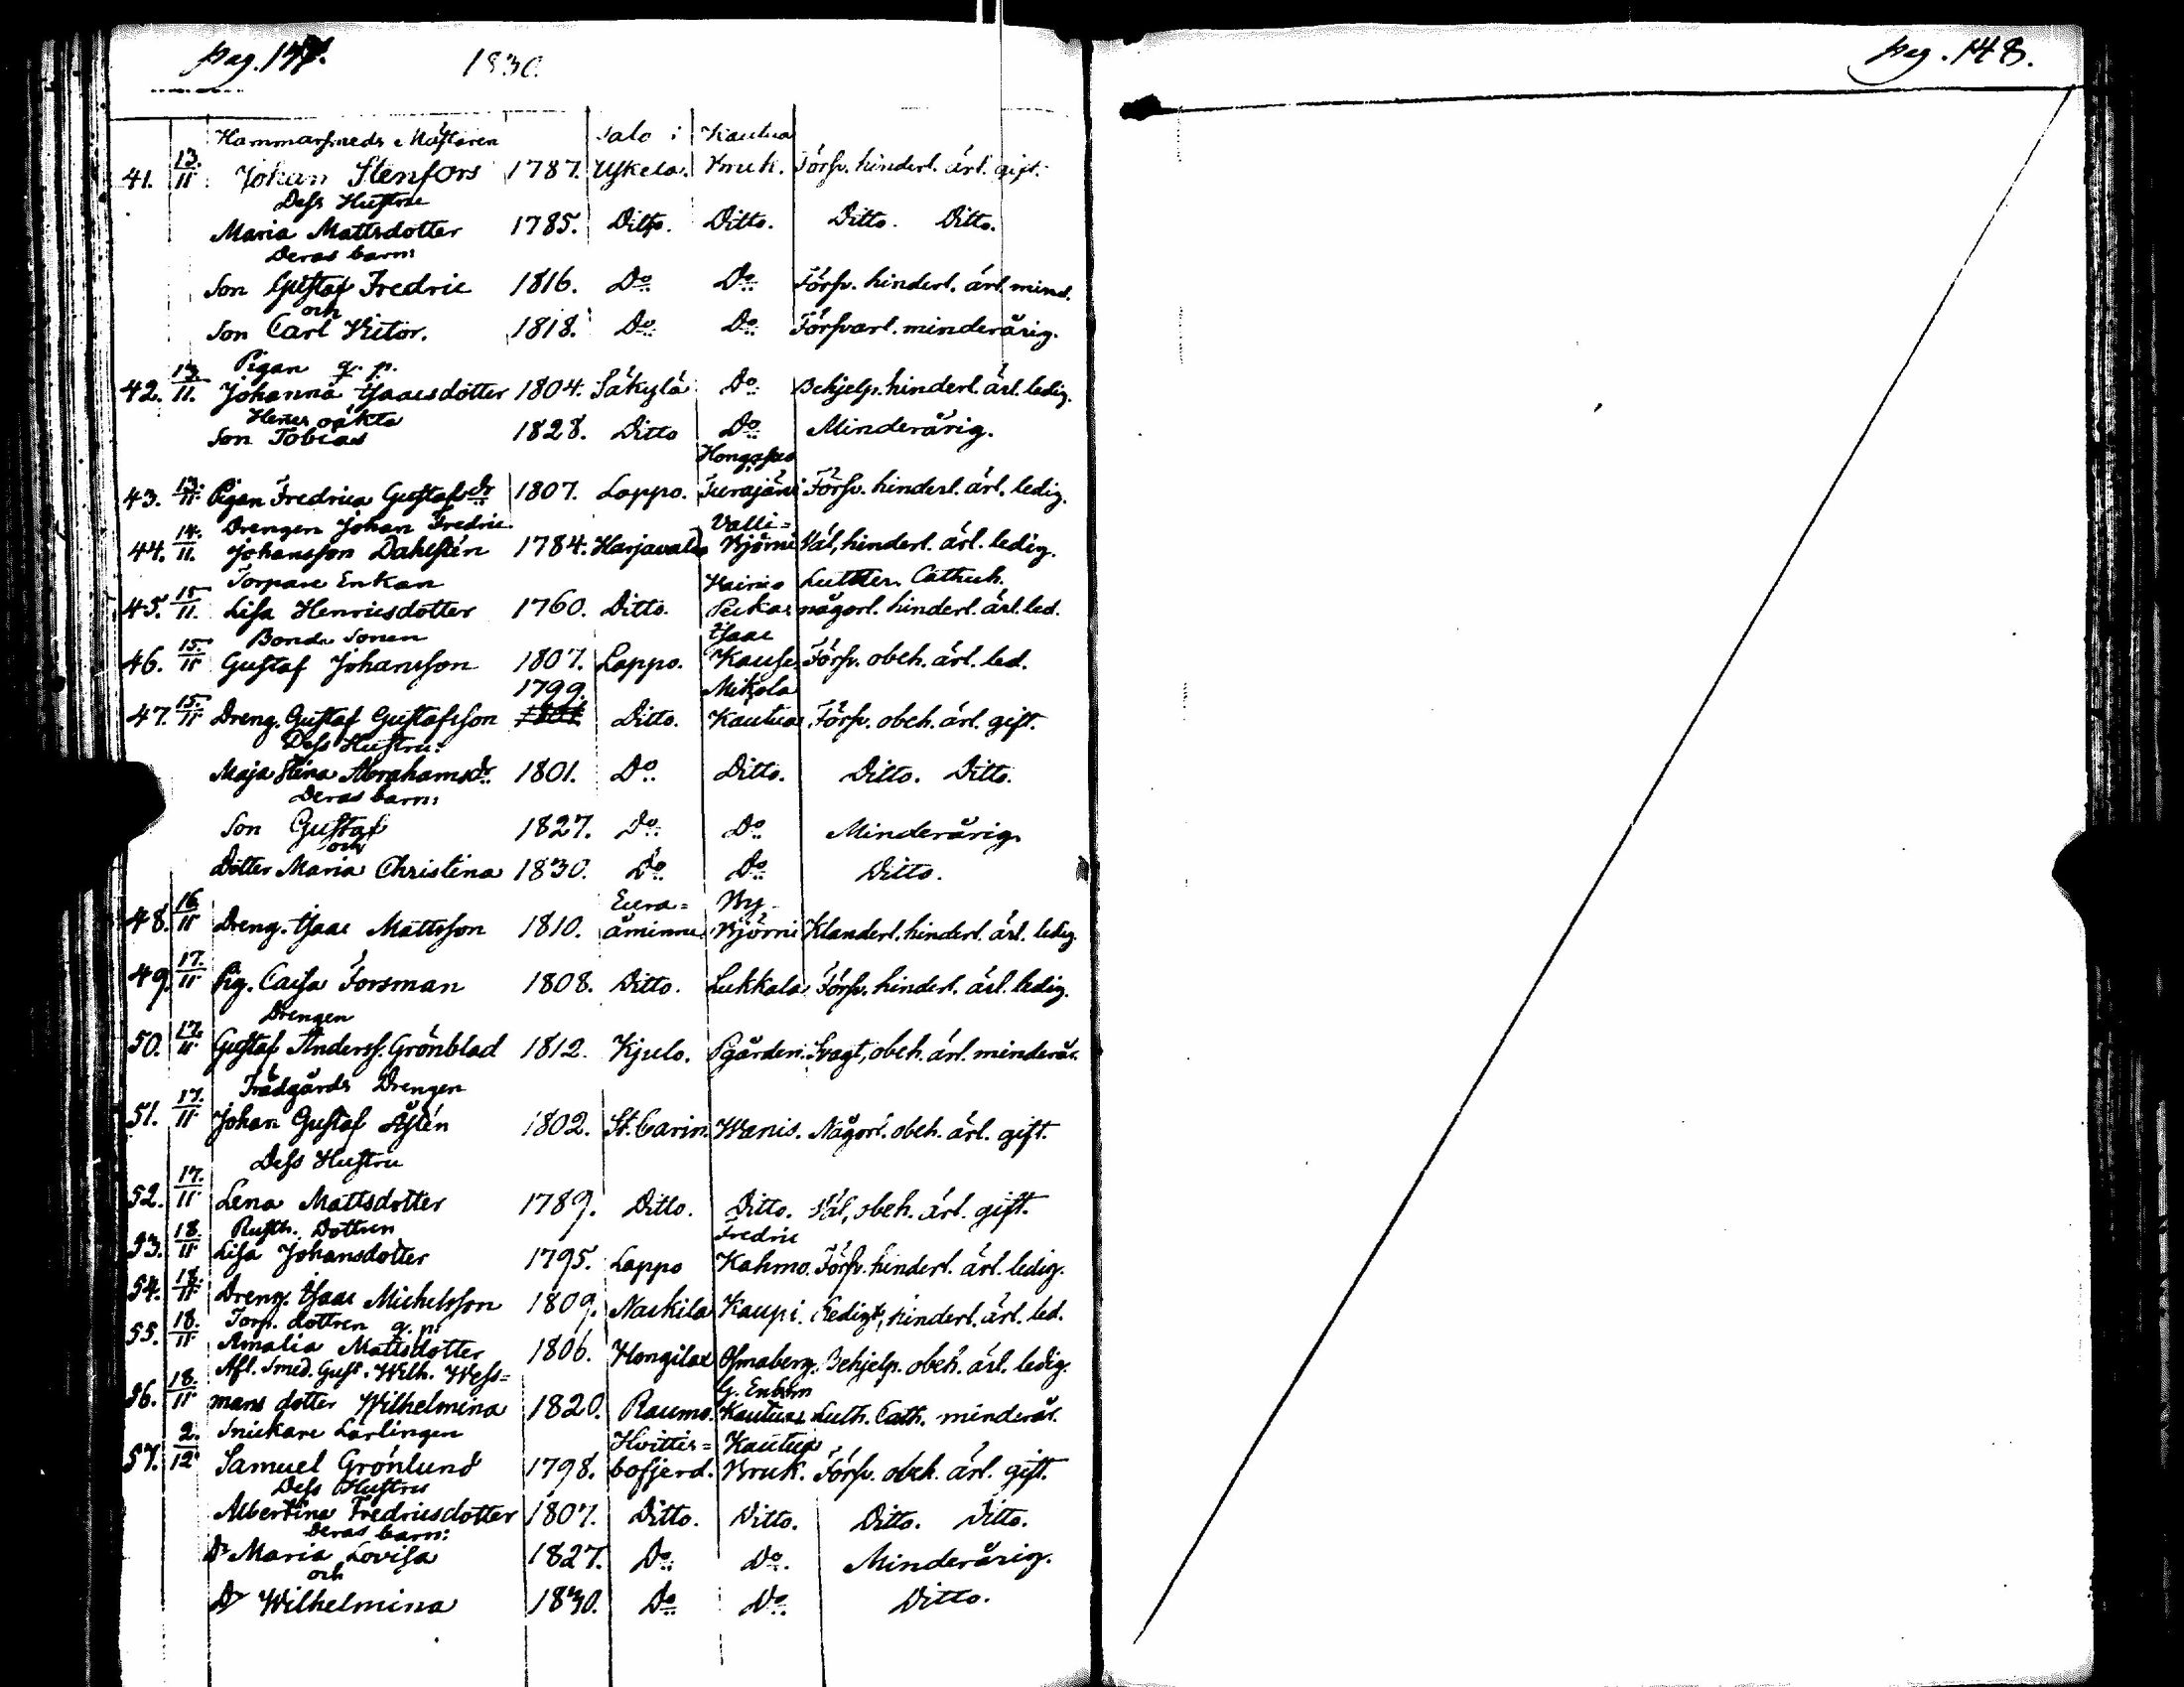 pag. 147.
1830.
pag. 148.
Hammarsmeds Mästaren Salo i Kautua
41. 13/11 Johan Stenfors 1787. Uskela. Bruk. Försv. hinderl. ärl. gift.
Dess Hustru
Maria Mattsdotter 1785. Ditto. Ditto. Ditto. Ditto.
Deras barn:
Son Gustaf Fredric 1816. Do Do Försv. hinderl. ärl. mind.
och
Son Carl Victor. 1818. Do Do Försvarl. minderårig.
Pigan q. p.
42. 13/11. Johanna Isaacsdotter 1804. Säkylä Do Behjelp. hinderl. ärl. ledig.
Henes oäkta
Son Tobias 1828. Ditto Do Minderårig.
43. 13/11 Pigan Fredrica Gustafsdr 1807. Lappo. Eurajäni Försv. hinderl. ärl. ledig.
Drengen Johan Fredric Valli=
44. 14/11. Johansson Dahlstén 1784. Harjavalda Björni Väl, hinderl. ärl. ledig.
Torpare Enkan Luther. Cathech.
45. 15/11. Lisa Henricsdotter 1760. Ditto. någorl. hinderl. ärl. led.
Bonde Sonen Isaac
46. 15/11 Gustaf Johansson 1807. Lappo. Försv. obeh. ärl. led.
1799. Mikola
47. 15/11 Dreng. Gustaf Gustafsson Ditto. Kautua Försv. obeh. ärl. gift.
Dess Hustru:
Maja Stina Abrahamsdr 1801. Do Ditto. Ditto. Ditto.
Deras barn:
Son Gustaf 1827. Do Do Minderårig.
och
Dotter Maria Christina 1830. Do Do Ditto.
Eura= By-
48. 16/11 Dreng. Isaac Mattsson 1810. åminne Björni Klanderl. hinderl. ärl. ledig.
49. 17/11 Pig. Caisa Forsman 1808. Ditto. Lukkala Försv. hinderl. ärl. ledig.
Drengen
50. 17/11 Gustaf Anderss. Grönblad 1812. Kjulo. Pgården. Svagt, obeh. ärl. minderår.
Trädgårds Drengen
51. 17/11 Johan Gustaf Åstén 1802. St. Carin. Wanis. Någorl. obeh. ärl. gift.
Dess Hustru
52. 17/11 Lena Mattsdotter 1789. Ditto. Ditto. Väl, obeh. ärl. gift.
Rusth. Dottren Fredric
53. 18/11 Lisa Johansdotter 1795. Lappo Kahmo. Försv. hinderl. ärl. ledig.
54. 18/11 Dreng. Isaac Michelsson 1809. Nackila Kaupi. Redigt, hinderl. ärl. led.
Torp. dottren q. p.
55. 18/11 Amalia Mattsdotter 1806. Hongilax Osmaberg. Behjelp. obeh. ärl. ledig.
Afl. Smed. Gust. Wilh. Wess= G. Enbom
56. 18/11 mans dotter Wilhelmina 1820. Raumo. Kautua Luth. Cath. minderår.
Snickare Lärlingen Hvittis= Kautua
57. 2/12 Samuel Grönlund 1798. bofjerd. Bruk. Försv. obeh. ärl. gift.
Dess Hustru
Albertina Fredricsdotter 1807. Ditto. Ditto. Ditto. Ditto.
Deras barn:
Dr Maria Lovisa 1827. Do Do. Minderårig.
och
Dr Wilhelmina 1830. Do Do. Ditto.